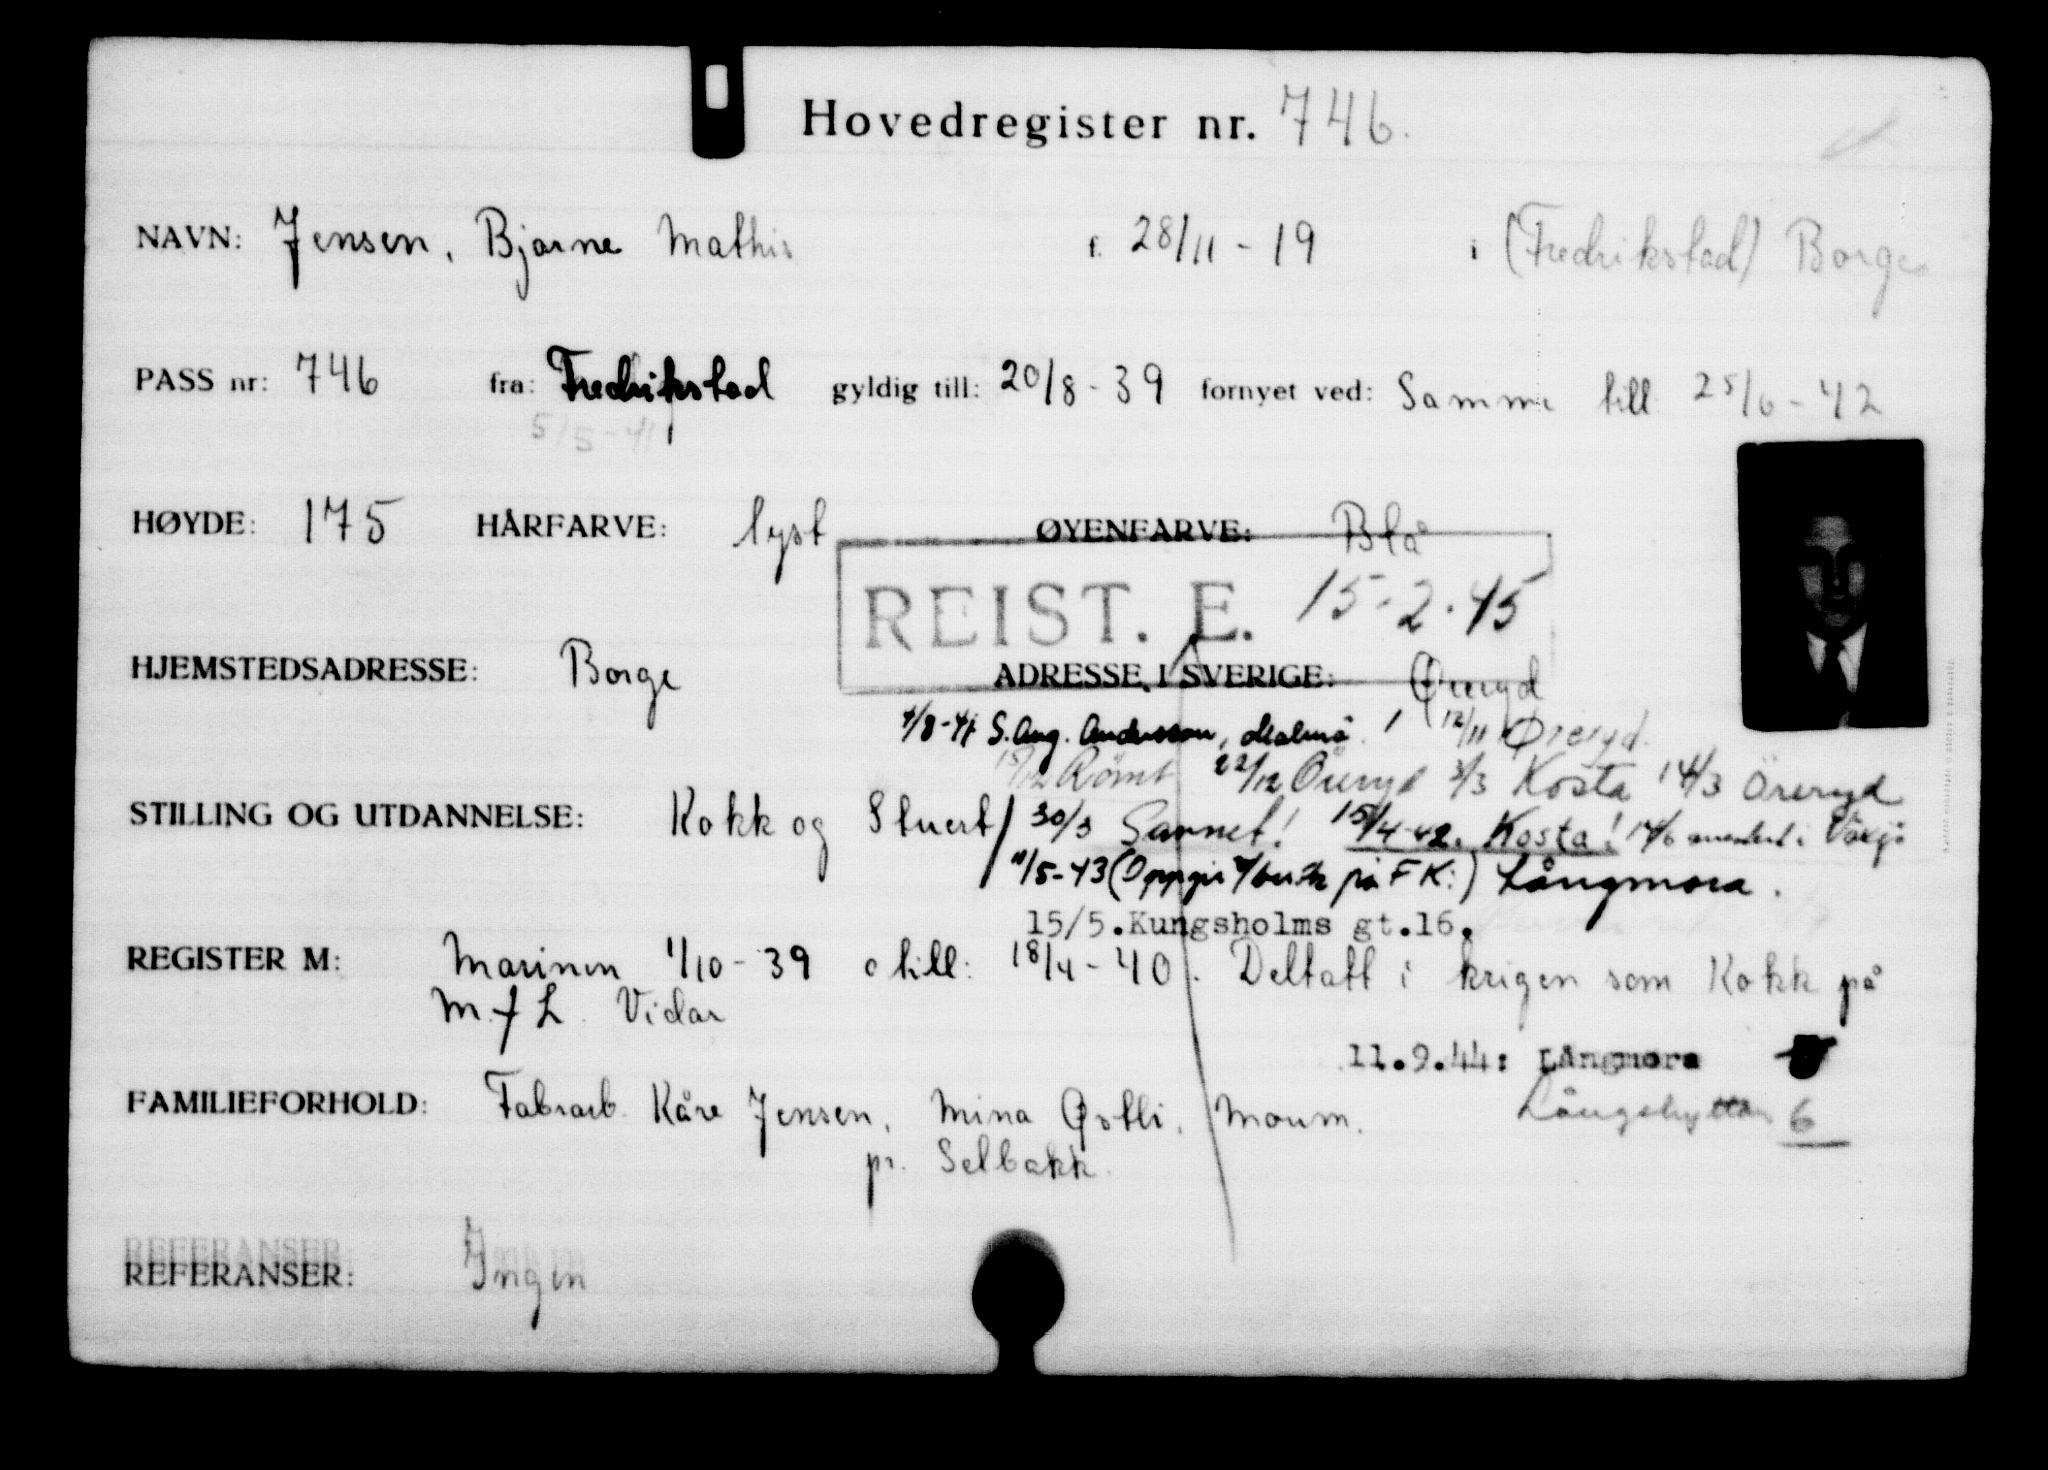 Hovedregister nr. 746.
NAVN: Jensen, Bjarne Mathis f. 28/11 - 19 i (Fredrikstad) Borge
PASS nr: 746 fra: Fredrikstad gyldig till: 20/8 - 39 fornyet ved: Samme till 25/6 - 42
5/5 - 41
HØYDE: 175 HÅRFARVE: lyst ØYENFARVE: Blå
REIST. E. 15-2-45
HJEMSTEDSADRESSE: Borge ADRESSE I SVERIGE: Øreryd
4/8-41 S. Aug. Andersson, Malmö. 12/11 Øreryd.
15/12 Rømt 22/12 Öreryd 3/3 Kosta 14/3 Öreryd
STILLING OG UTDANNELSE: Kokk og Stuert / 30/3 Savnet! 15/4-42. Kosta! 14/6 i Växjö
11/5-43 (Oppgir på F K:) Långmora.
15/5. Kungsholms gt.16.
REGISTER M: Marinen 1/10 - 39 o till: 18/4 - 40. Deltatt i krigen som Kokk på
M.f L. Vidar
11.9.44: Långmora
FAMILIEFORHOLD: Fabrarb. Kåre Jensen, Mina Østli, Moum. Långshyttan 6
pr. Selbakk.
REFERANSER: Ingen